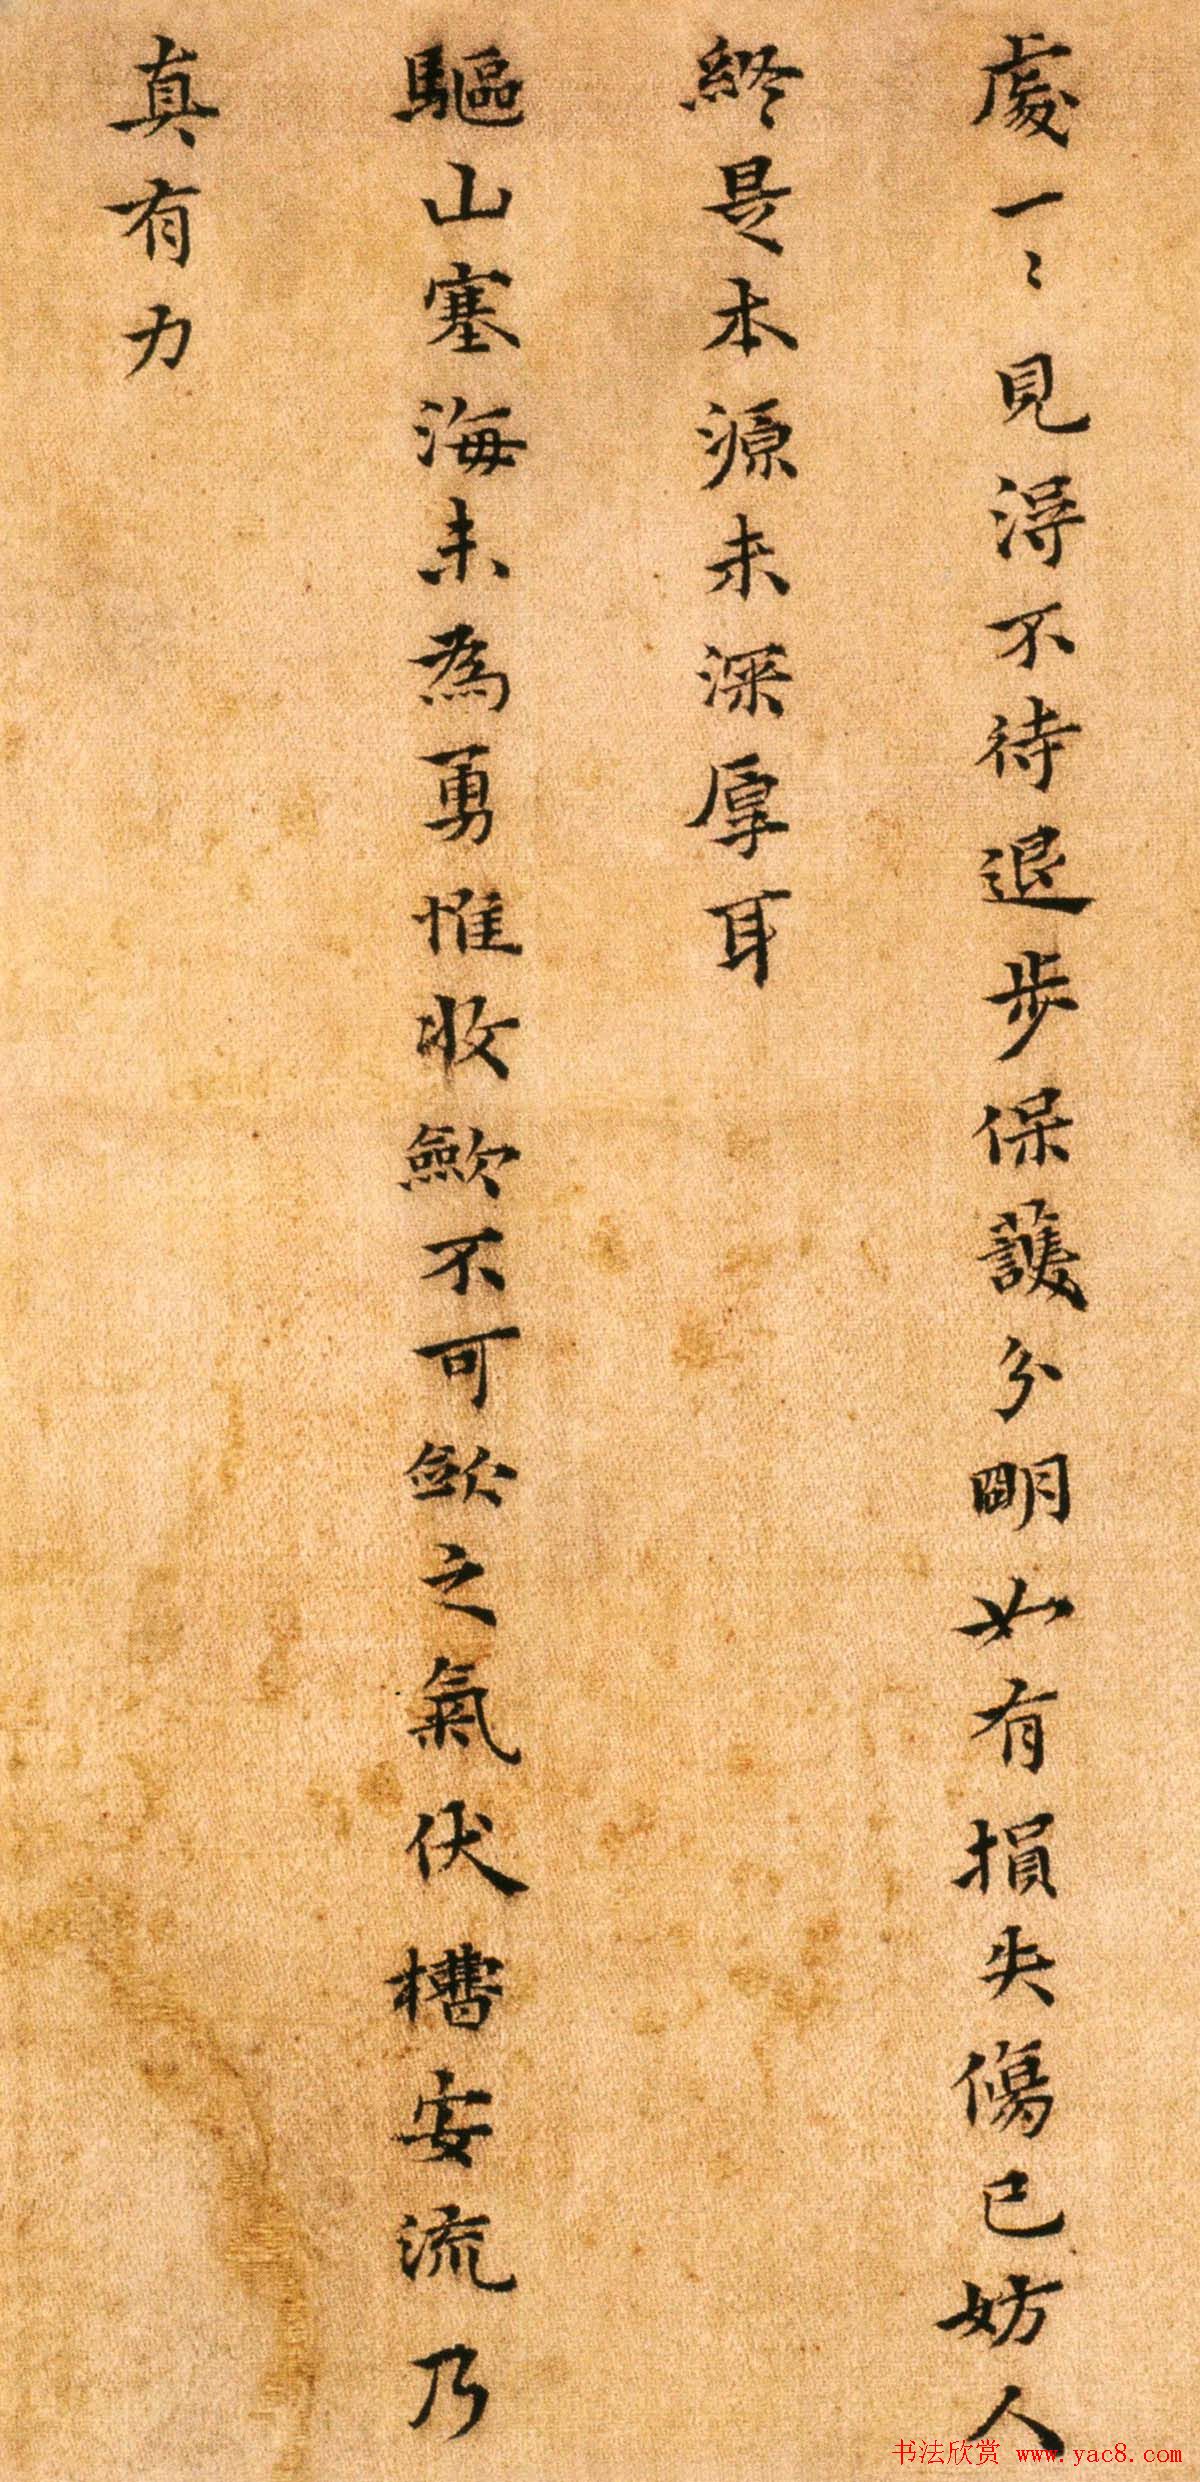 處一〻見得不待退步保護分明如有損失傷己妨人
終是本源未深厚耳
驅山塞海未為勇惟收歛不可歛之氣伏槽安流乃
真有力
书法欣赏 www.yac8.com